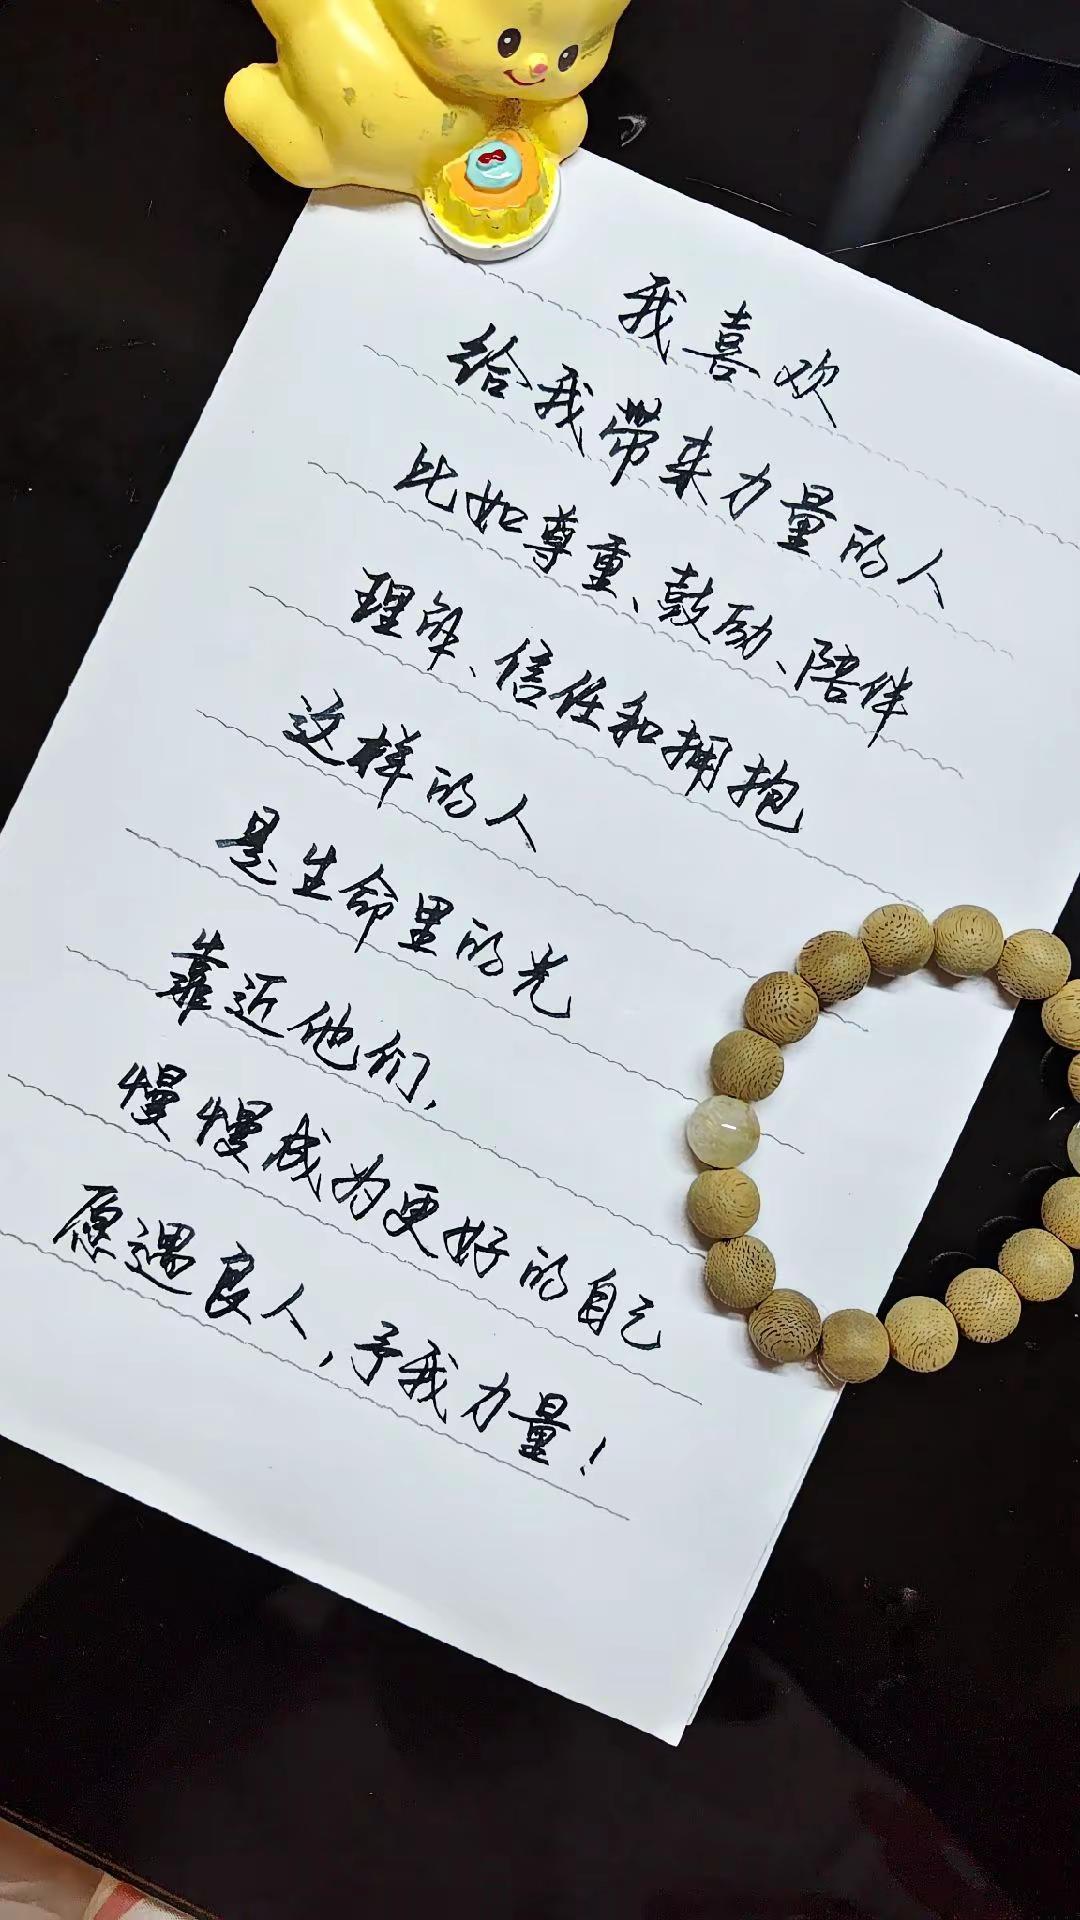 我喜欢
给我带来力量的人
比如尊重、鼓励、陪伴
理解、信任和拥抱
这样的人
是生命里的光
靠近他们,
慢慢成为更好的自己
愿遇良人,予我力量!